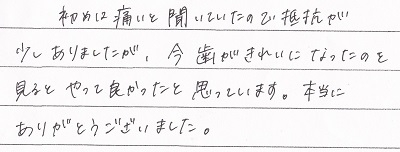 初めは痛いと聞いていたので抵抗が
少しありましたが、今歯がきれいになったのを
見るとやって良かったと思っています。本当に
ありがとうございました。